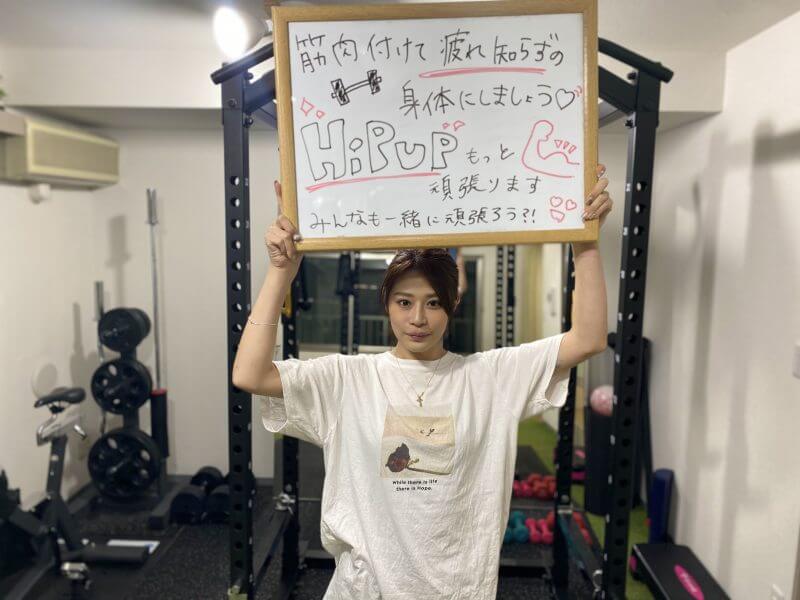 筋肉付けて疲れ知らずの
身体にしましょう♡
HiPUP もっと
頑張ります
みんなも一緒に頑張ろう?!
While there is life
there is Hope.